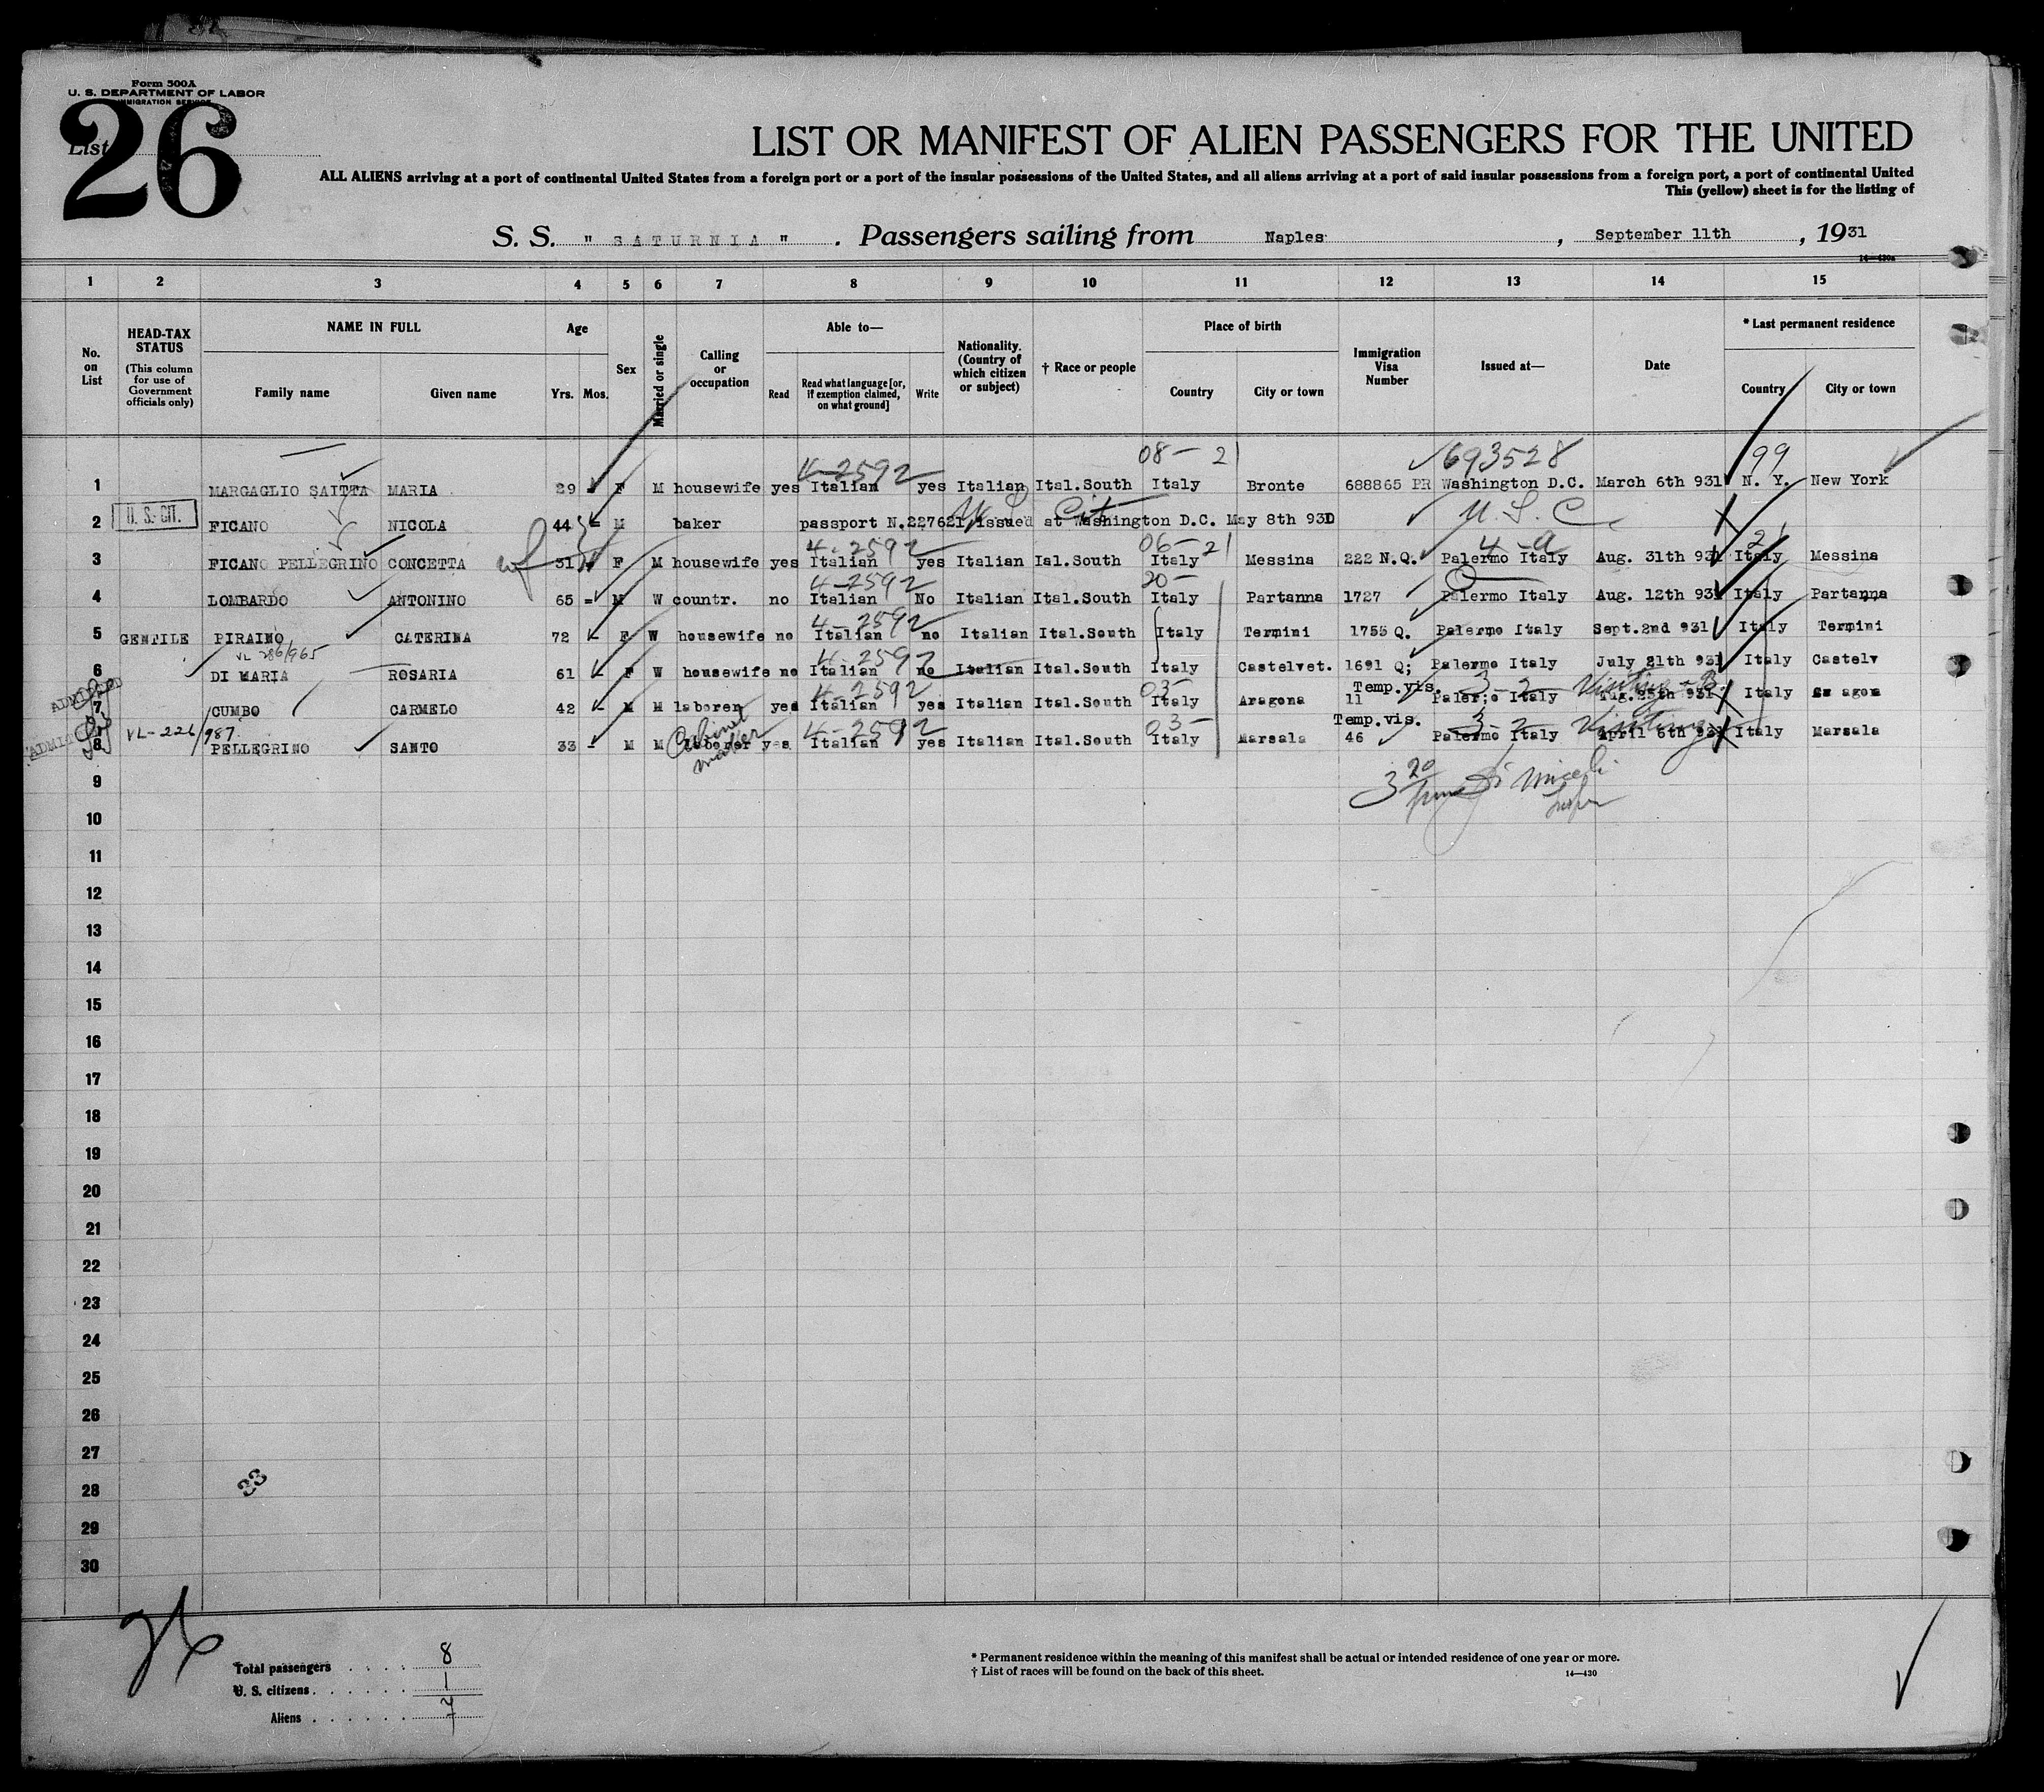 Form 500A
U. S. DEPARTMENT OF LABOR
IMMIGRATION SERVICE
List
26
LIST OR MANIFEST OF ALIEN PASSENGERS FOR THE UNITED
ALL ALIENS arriving at a port of continental United States from a foreign port or a port of the insular possessions of the United States, and all aliens arriving at a port of said insular possessions from a foreign port, a port of continental United
This (yellow) sheet is for the listing of
S. S. " SATURNIA " . Passengers sailing from Naples , September 11th , 1931
14—430a
1 2 3 4 5 6 7 8 9 10 11 12 13 14 15
No. on List
HEAD-TAX STATUS (This column for use of Government officials only)
NAME IN FULL Family name Given name
Age Yrs. Mos.
Sex
Married or single
Calling or occupation
Able to— Read Read what language [or, if exemption claimed, on what ground] Write
Nationality. (Country of which citizen or subject)
† Race or people
Place of birth Country City or town
Immigration Visa Number
Issued at—
Date
* Last permanent residence Country City or town
4-2592 08— 21 693528 99
1 MARGAGLIO SAITTA MARIA 29 F M housewife yes Italian yes Italian Ital.South Italy Bronte 688865 PR Washington D.C. March 6th 931 N. Y. New York
U. S. CIT. U S Cit U. S. C
2 FICANO NICOLA 44 = M baker passport N.227621 issued at Washington D.C. May 8th 93
4-2592 06—21 4-a 21
3 FICANO PELLEGRINO CONCETTA wf 31 F M housewife yes Italian yes Italian Ial.South Italy Messina 222 N.Q. Palermo Italy Aug. 31th 931 Italy Messina
4-2592 20—
4 LOMBARDO ANTONINO 65 = M W countr. no Italian No Italian Ital.South Italy Partanna 1727 Palermo Italy Aug. 12th 931 Italy Partanna
4-2592
5 GENTILE PIRAINO CATERINA 72 F W housewife no Italian no Italian Ital.South Italy Termini 1755 Q. Palermo Italy Sept.2nd 931 Italy Termini
VL 286/965 4-2592
6 DI MARIA ROSARIA 61 F W housewife no Italian no Italian Ital.South Italy Castelvet. 1691 Q; Palermo Italy July 21th 931 Italy Castelv
ADMITTED 4-2592 03— Temp.vis. 3-2 Visiting-B
7 CUMBO CARMELO 42 M M laborer yes Italian yes Italian Ital.South Italy Aragona 11 Italy Aug.25th 931 Italy
VL-226/987 Cabinet maker 4-2592 03— Temp.vis. 3-2 Visiting
8 PELLEGRINO SANTO 33 - M M laborer yes Italian yes Italian Ital.South Italy Marsala 46 Palermo Italy April 6th 931 Italy Marsala
9
3 20
10
11
12
13
14
15
16
17
18
19
20
21
22
23
24
25
26
27
28
33
29
30
Total passengers . . . . 8
U. S. citizens . . . . . . 1
Aliens . . . . . . 7
* Permanent residence within the meaning of this manifest shall be actual or intended residence of one year or more.
† List of races will be found on the back of this sheet. 14—430